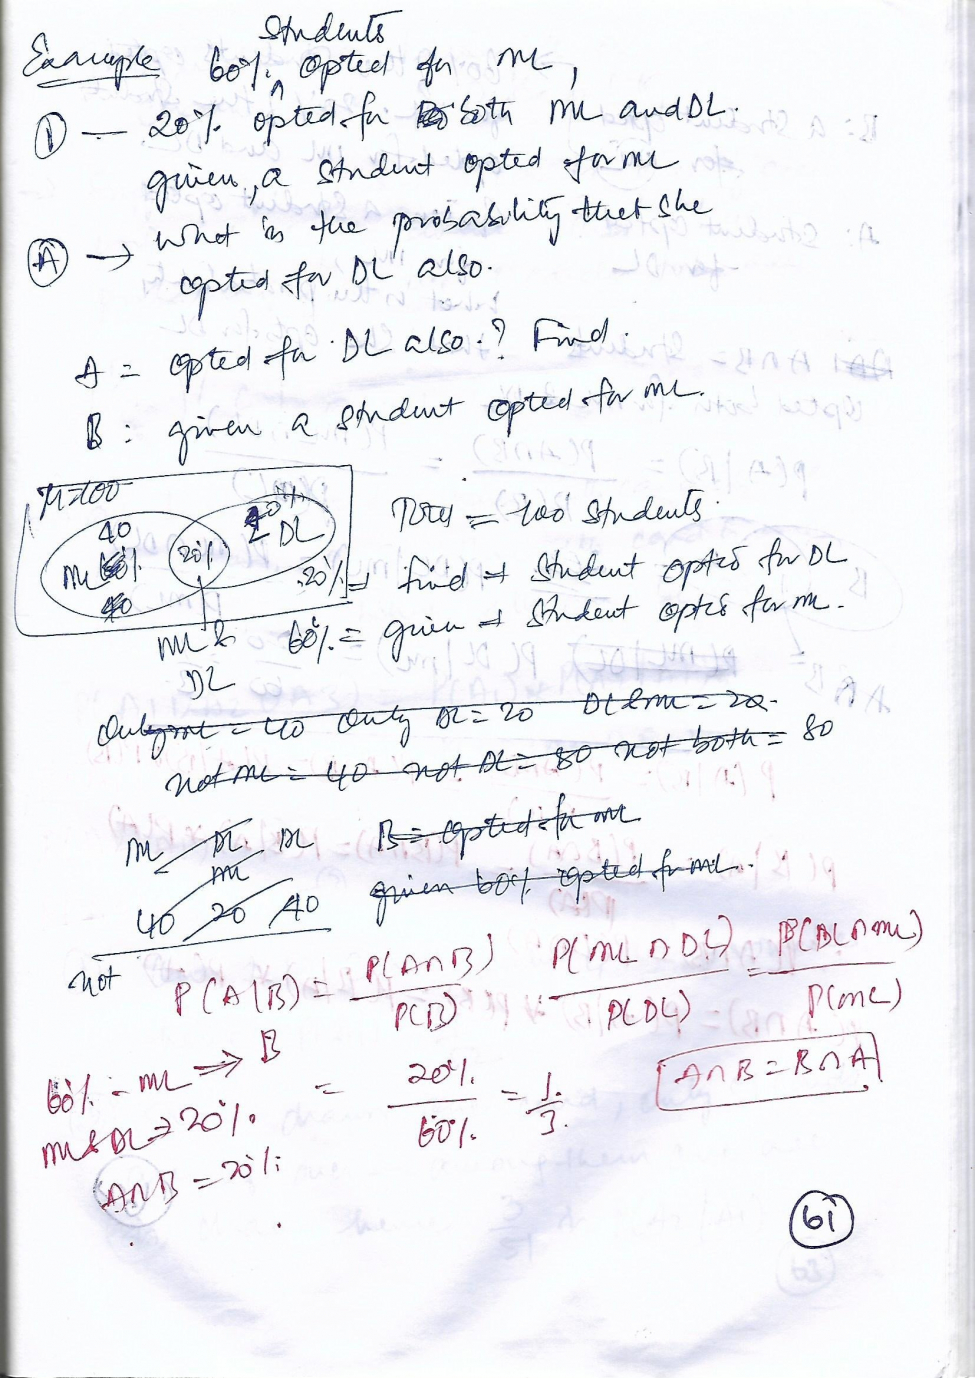 Students
Example 60% opted for ML,
① — 20% opted for both ML and DL.
given, a student opted for ML
Ⓐ → what is the probability that she
opted for DL also.
A = opted for DL also.? Find.
B : given a student opted for ML.
μ=100
40
ML 60% 20% DL
40
Total = 100 students.
20% = find → student opted for DL
ML & DL
60% = given → student opted for ML.
Only ML = 40 Only DL = 20 DL & ML = 20.
not ML = 40 not DL = 80 not both = 80
ML DL ML DL
B = opted for ML
40 20 40
given 60% opted for ML.
not
P(A|B) = P(A∩B) / P(B) : P(ML∩DL) / P(DL) = P(DL∩ML) / P(ML)
60% - ML ⇒ B
= 20% / 60% = 1/3.
A∩B = B∩A
ML & DL ⇒ 20%.
A∩B = 20%
61